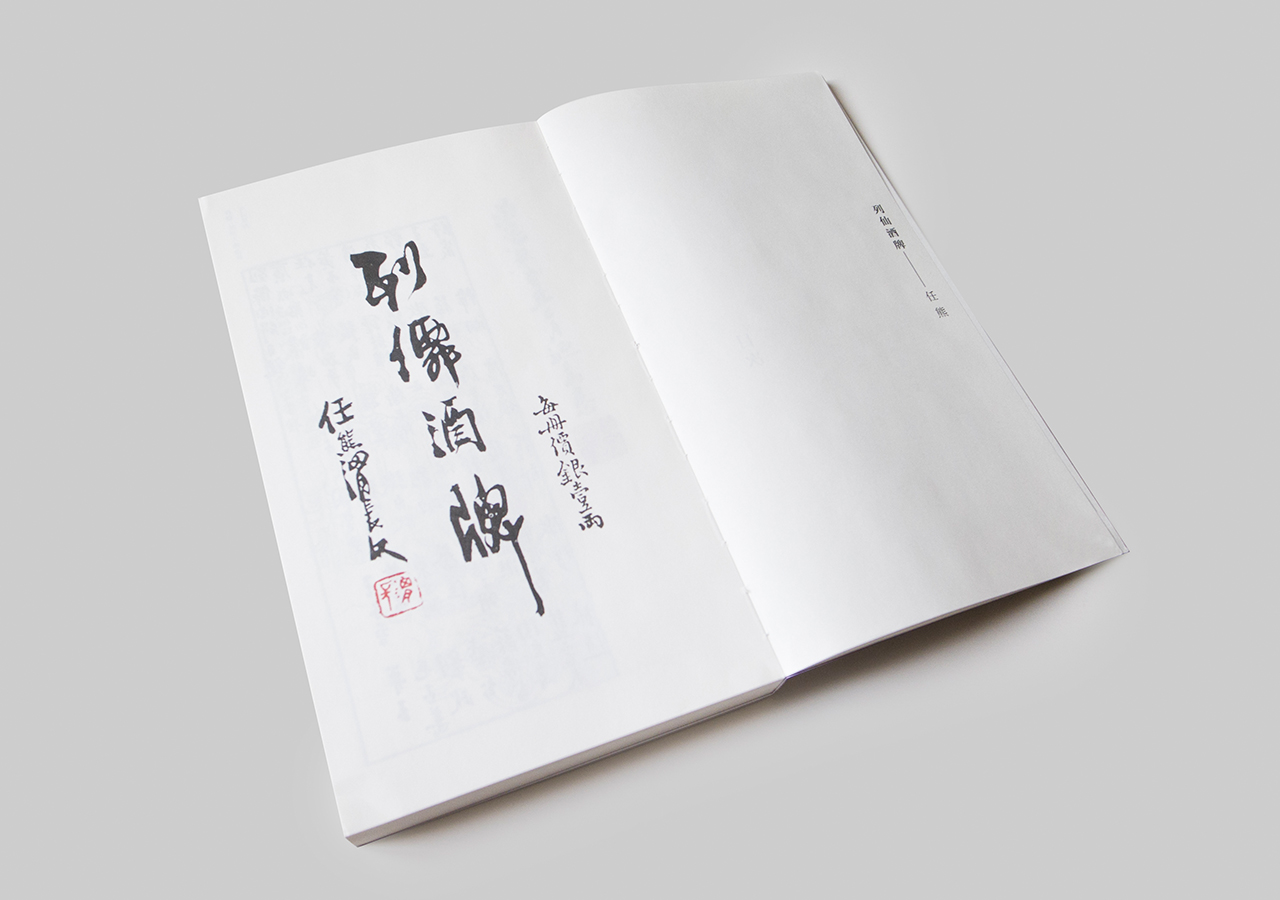 列仙酒牌——任熊
每冊價銀壹兩
列僊酒牌
任熊渭長父